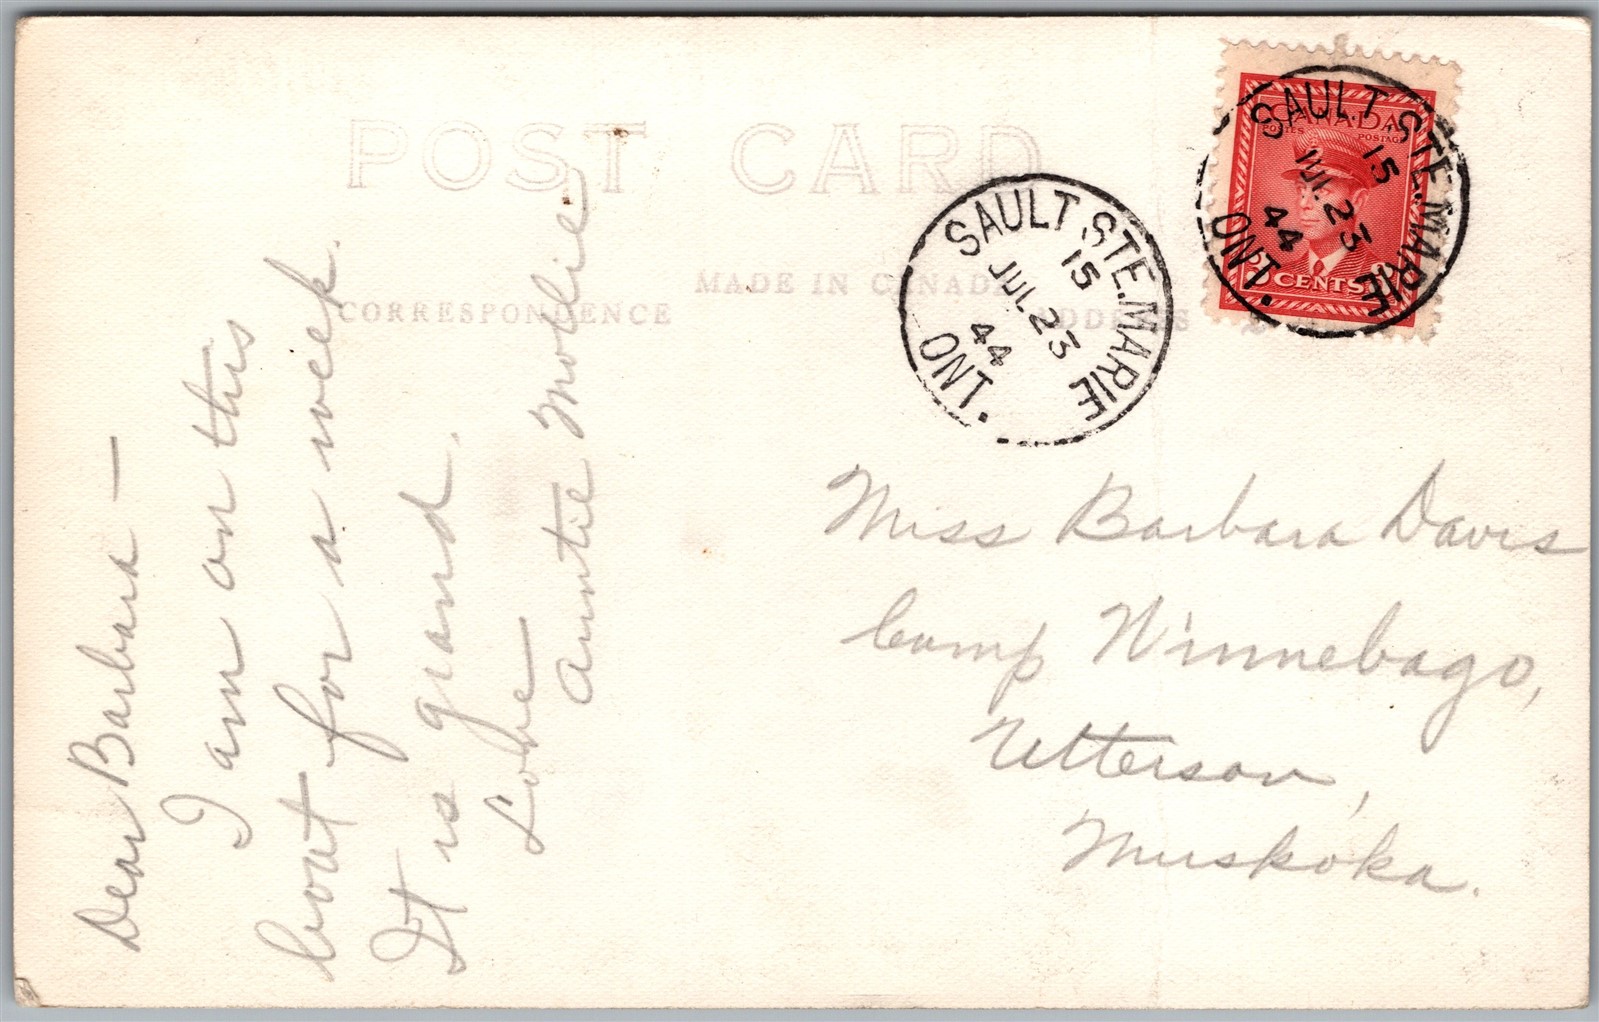 POST CARD
MADE IN CANADA
CORRESPONDENCE
ADDRESS
Dear Barbara —
I am on this
boat for a week.
It is grand.
Love
Auntie Mollie
SAULT STE. MARIE
15
JUL 23
44
ONT.
CANADA
POSTES POSTAGE
CENTS
SAULT STE. MARIE
15
JUL 23
44
ONT.
Miss Barbara Davis
Camp Winnebago,
Utterson,
Muskoka.